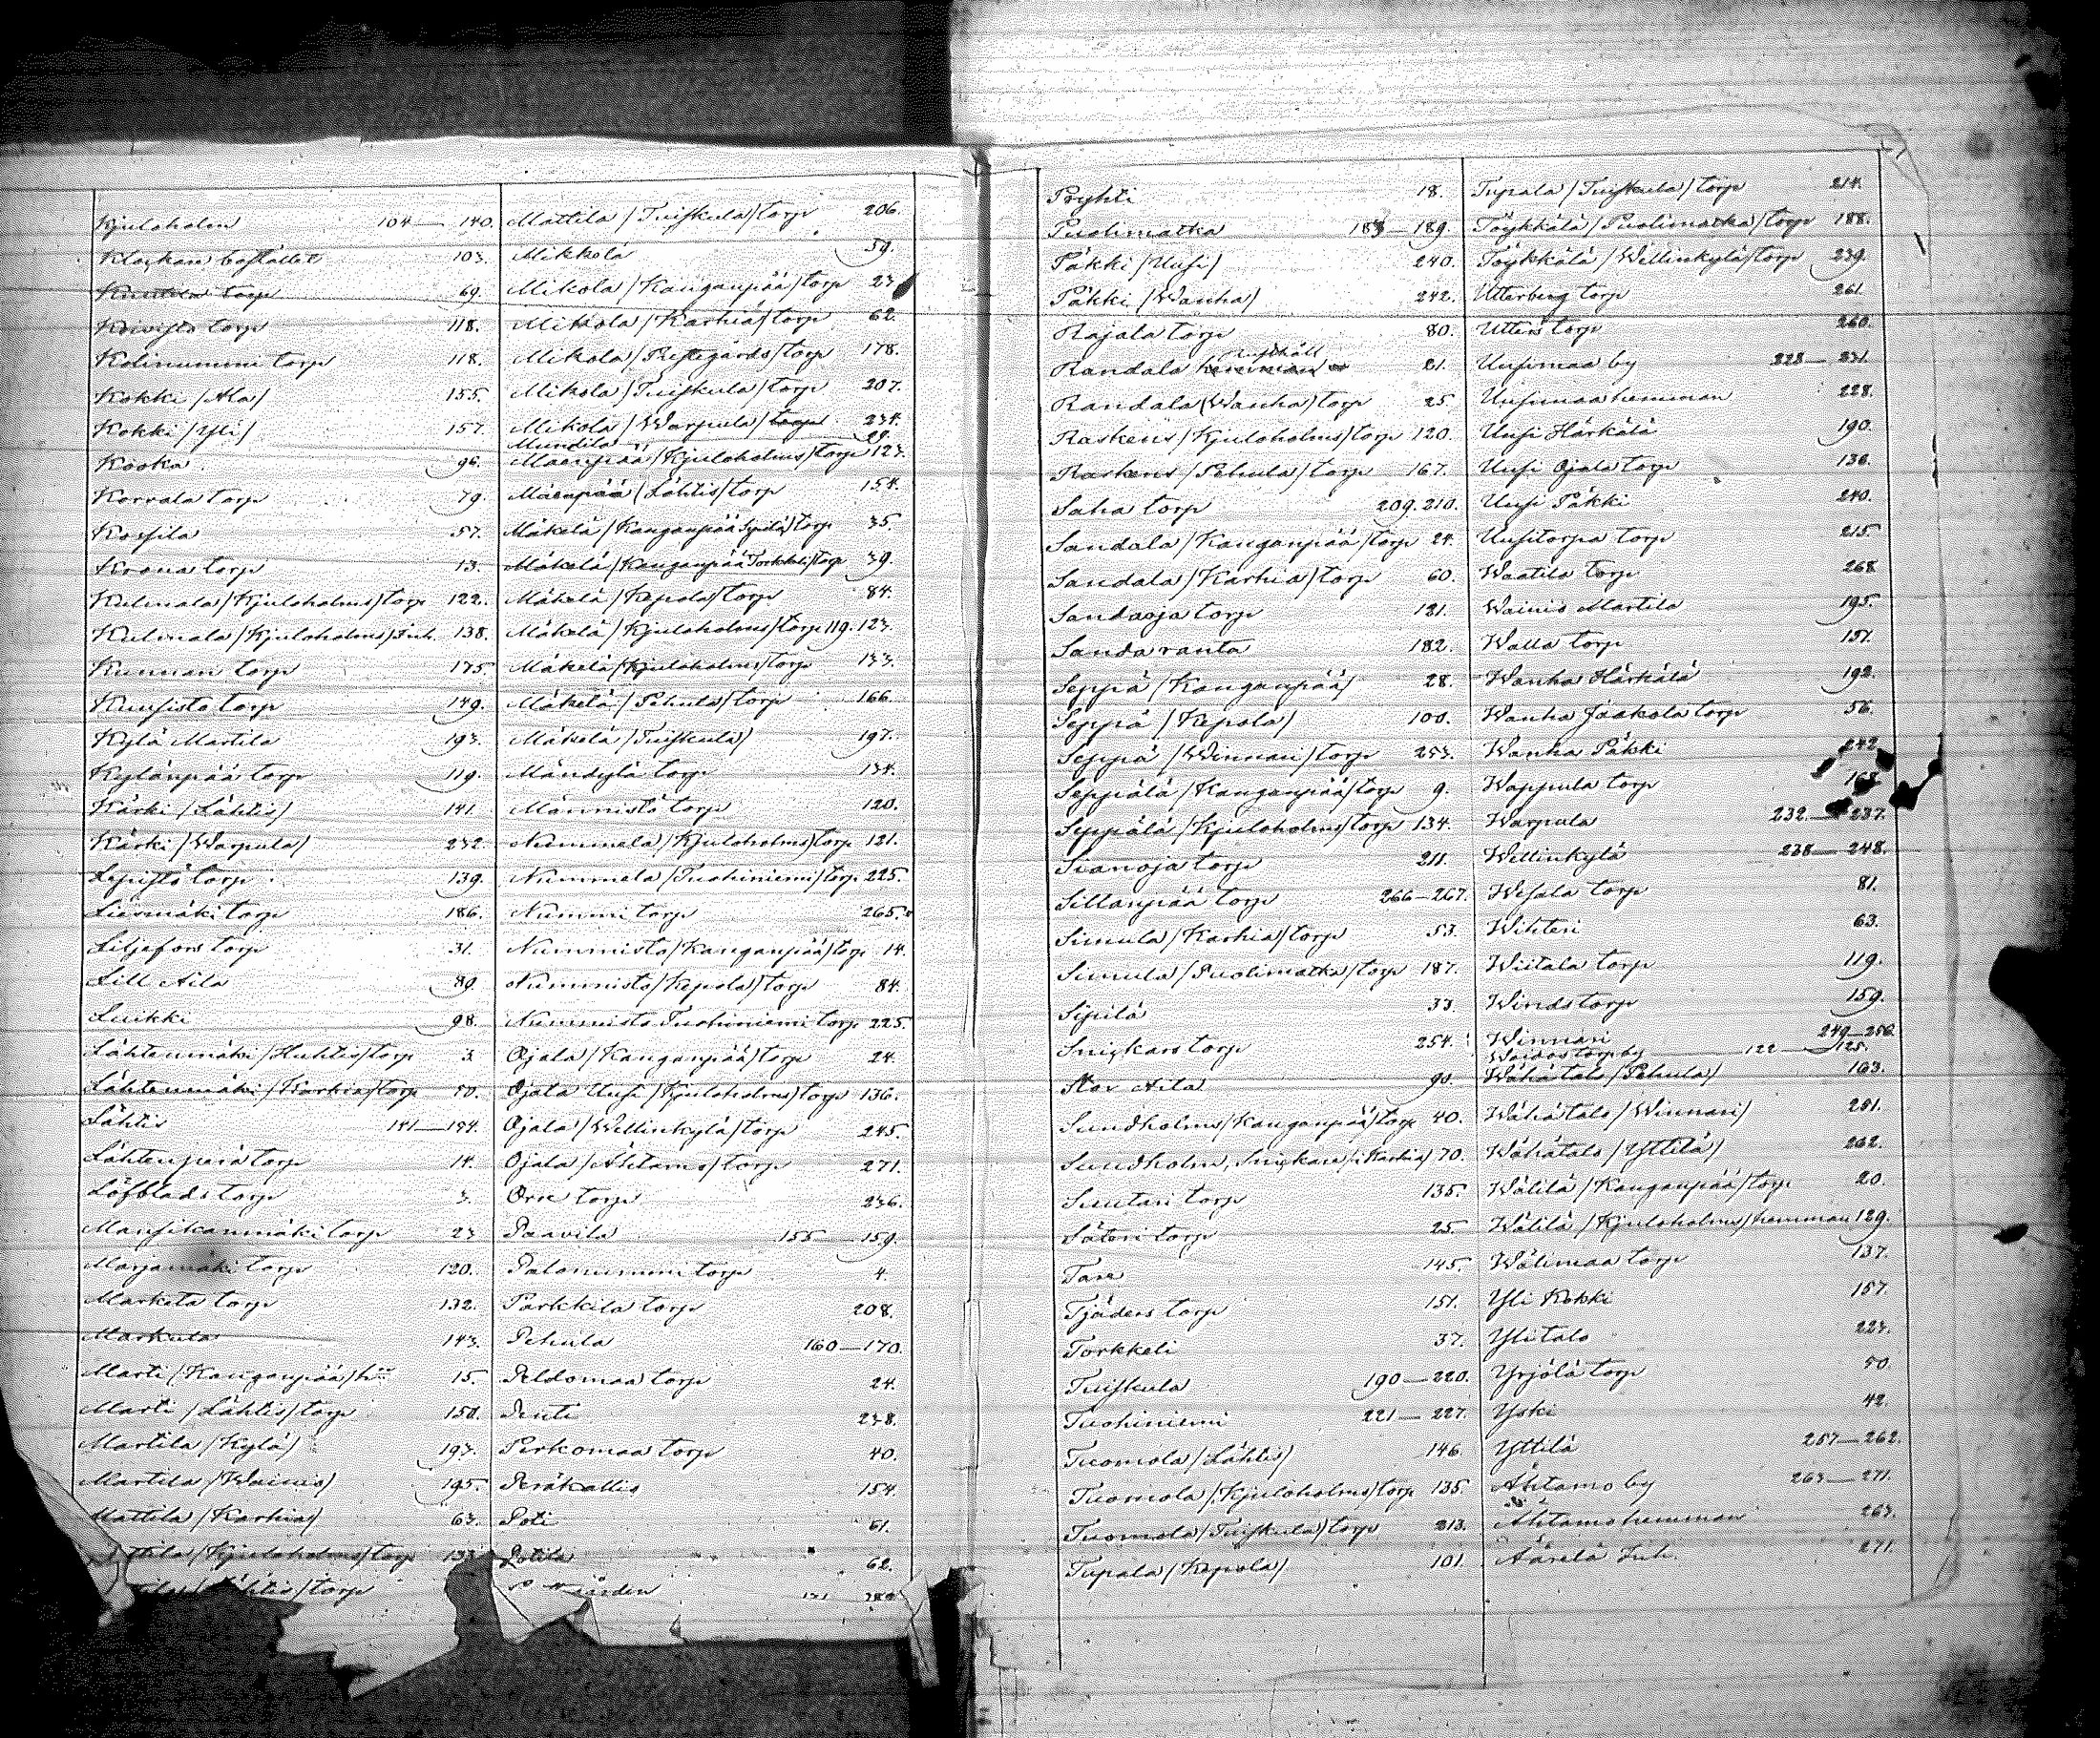 Kjuloholm 104—140.
Klockare bostället 103.
Knutila torp 69.
Koivisto torp 118.
Kolinummi torp 118.
Kokki /Ala/ 155.
Kokki /Yli/ 157.
Kooka 96.
Korvala torp 79.
Kossila 57.
Krona torp 13.
Kulmala /Kjuloholms/ torp 122.
Kulmala /Kjuloholms/ Inh. 138.
Kunnan torp 175.
Kuusisto torp 149.
Kylä Martila 193.
Kylänpää torp 119.
Kärki /Lähtis/ 141.
Kärki /Warpula/ 232.
Lepistö torp 139.
Liesmäki torp 186.
Liljefors torp 31.
Lill Aila 89.
Luikki 98.
Lähtenmäki /Huhtis/ torp 3.
Lähtenmäki /Karhia/ torp 70.
Lähtis 141—154.
Lähtenperä torp 14.
Löfblads torp 3.
Mansikanmäki torp 23
Marjamäki torp 120.
Marketa torp 132.
Markula 143.
Marti /Kanganpää/ 15.
Marti /Lähtis/ torp 150.
Martila /Kylä/ 193.
Martila /Wainis/ 195.
Mattila /Karhia/ 63.
/Kjuloholms/ torp
/Lähtis/ torp
Mattila /Tuiskula/ torp 206.
Mikkola 59.
Mikola /Kanganpää/ torp 23
Mikola /Karhia/ torp 62.
Mikola /Prestegårds/ torp 178.
Mikola /Tuiskula/ torp 207.
Mikola /Warpula/ torp 234.
Mundila 29.
Mäenpää /Kjuloholms/ torp 123.
Mäenpää /Lähtis/ torp 154.
Mäkelä /Kanganpää Sipilä/ torp 35.
Mäkelä /Kanganpää Torkkeli/ torp 39.
Mäkelä /Kepola/ torp 84.
Mäkelä /Kjuloholms/ torp 119. 123.
Mäkelä /Kjuloholms/ torp 133.
Mäkelä /Pehula/ torp 166.
Mäkelä /Tuiskula/ 197.
Mändylä torp 134.
Männistö torp 120.
Nummela /Kjuloholms/ torp 121.
Nummela /Tuohiniemi/ torp 225.
Nummi torp 265.
Nummisto /Kanganpää/ torp 14.
Nummisto /Kepola/ torp 84.
Nummisto Tuohiniemi torp 225.
Ojala /Kanganpää/ torp 24.
Ojala Uusi /Kjuloholms/ torp 136.
Ojala /Wellinkylä/ torp 245.
Ojala /Ähtamo/ torp 271.
Orre torp 236.
Paavila 155—159.
Palonummi torp 4.
Parkkila torp 208.
Pehula 160—170.
Peldomaa torp 24.
Penti 238.
Perkomaa torp 40.
Peräkallio 154.
Poti 61.
Potila 62.
Pöyhti 18.
Puolimatka 183—189.
Päkki /Uusi/ 240.
Päkki /Wanha/ 242.
Rajala torp 80.
Randala rusthåll 21.
Randala /Wanha/ torp 25.
Raskens /Kjuloholms/ torp 120.
Raskens /Pehula/ torp 167.
Saha torp 209. 210.
Sandala /Kanganpää/ torp 24.
Sandala /Karhia/ torp 60.
Sandaoja torp 121.
Sandaranta 182.
Seppä /Kanganpää/ 28.
Seppä /Kepola/ 100.
Seppä /Winnari/ torp 253.
Seppälä /Kanganpää/ torp 9.
Seppälä /Kjuloholms/ torp 134.
Sianoja torp 211.
Sillanpää torp 266—267.
Simula /Karhia/ torp 53.
Simula /Puolimatka/ torp 187.
Sipilä 33.
Snickars torp 254.
Stor Aila 90.
Sundholms /Kanganpää/ torp 40.
Sundholm, Snickare /:Karhia/ 70.
Suutari torp 135.
Säteri torp 25.
Tare 145.
Tjäders torp 151.
Torkkeli 37.
Tuiskula 190—220.
Tuohiniemi 221—227.
Tuomola /Lähtis/ 146
Tuomola /Kjuloholms/ torp 135.
Tuomola /Tuiskula/ torp 213.
Tupala /Kepola/ 101.
Tupala /Tuiskula/ torp 214.
Töykkälä /Puolimatka/ torp 188.
Töykkälä /Wellinkylä/ torp 239.
Utterberg torp 261.
Utters torp 260.
Uusimaa by 228—231.
Uusimaa hemman 228.
Uusi Härkälä 190.
Uusi Ojala torp 136.
Uusi Päkki 240.
Uusitorpa torp 215.
Waatila torp 268
Wainis Martila 195.
Walla torp 151.
Wanha Härkälä 192.
Wanha Jaakola torp 56.
Wanha Päkki 242
Wappula torp 168
Warpula 232—237.
Wellinkylä 238—248.
Wesala torp 81.
Wihteri 63.
Wiitala torp 119.
Winds torp 159.
Winnari 249—256.
torpby 122—125.
Wähätalo /Pehula/ 163.
Wähätalo /Winnari/ 251.
Wähätalo /Yttilä/ 262.
Wälilä /Kanganpää/ torp 20.
Wälilä /Kjuloholms/ hemman 129.
Wälimaa torp 137.
Yli Kokki 157.
Ylitalo 223.
Yrjölä torp 50.
Yski 42.
Yttilä 257—262.
Ähtamo by 263—271.
Ähtamo hemman 263.
Äärelä Inh. 271.